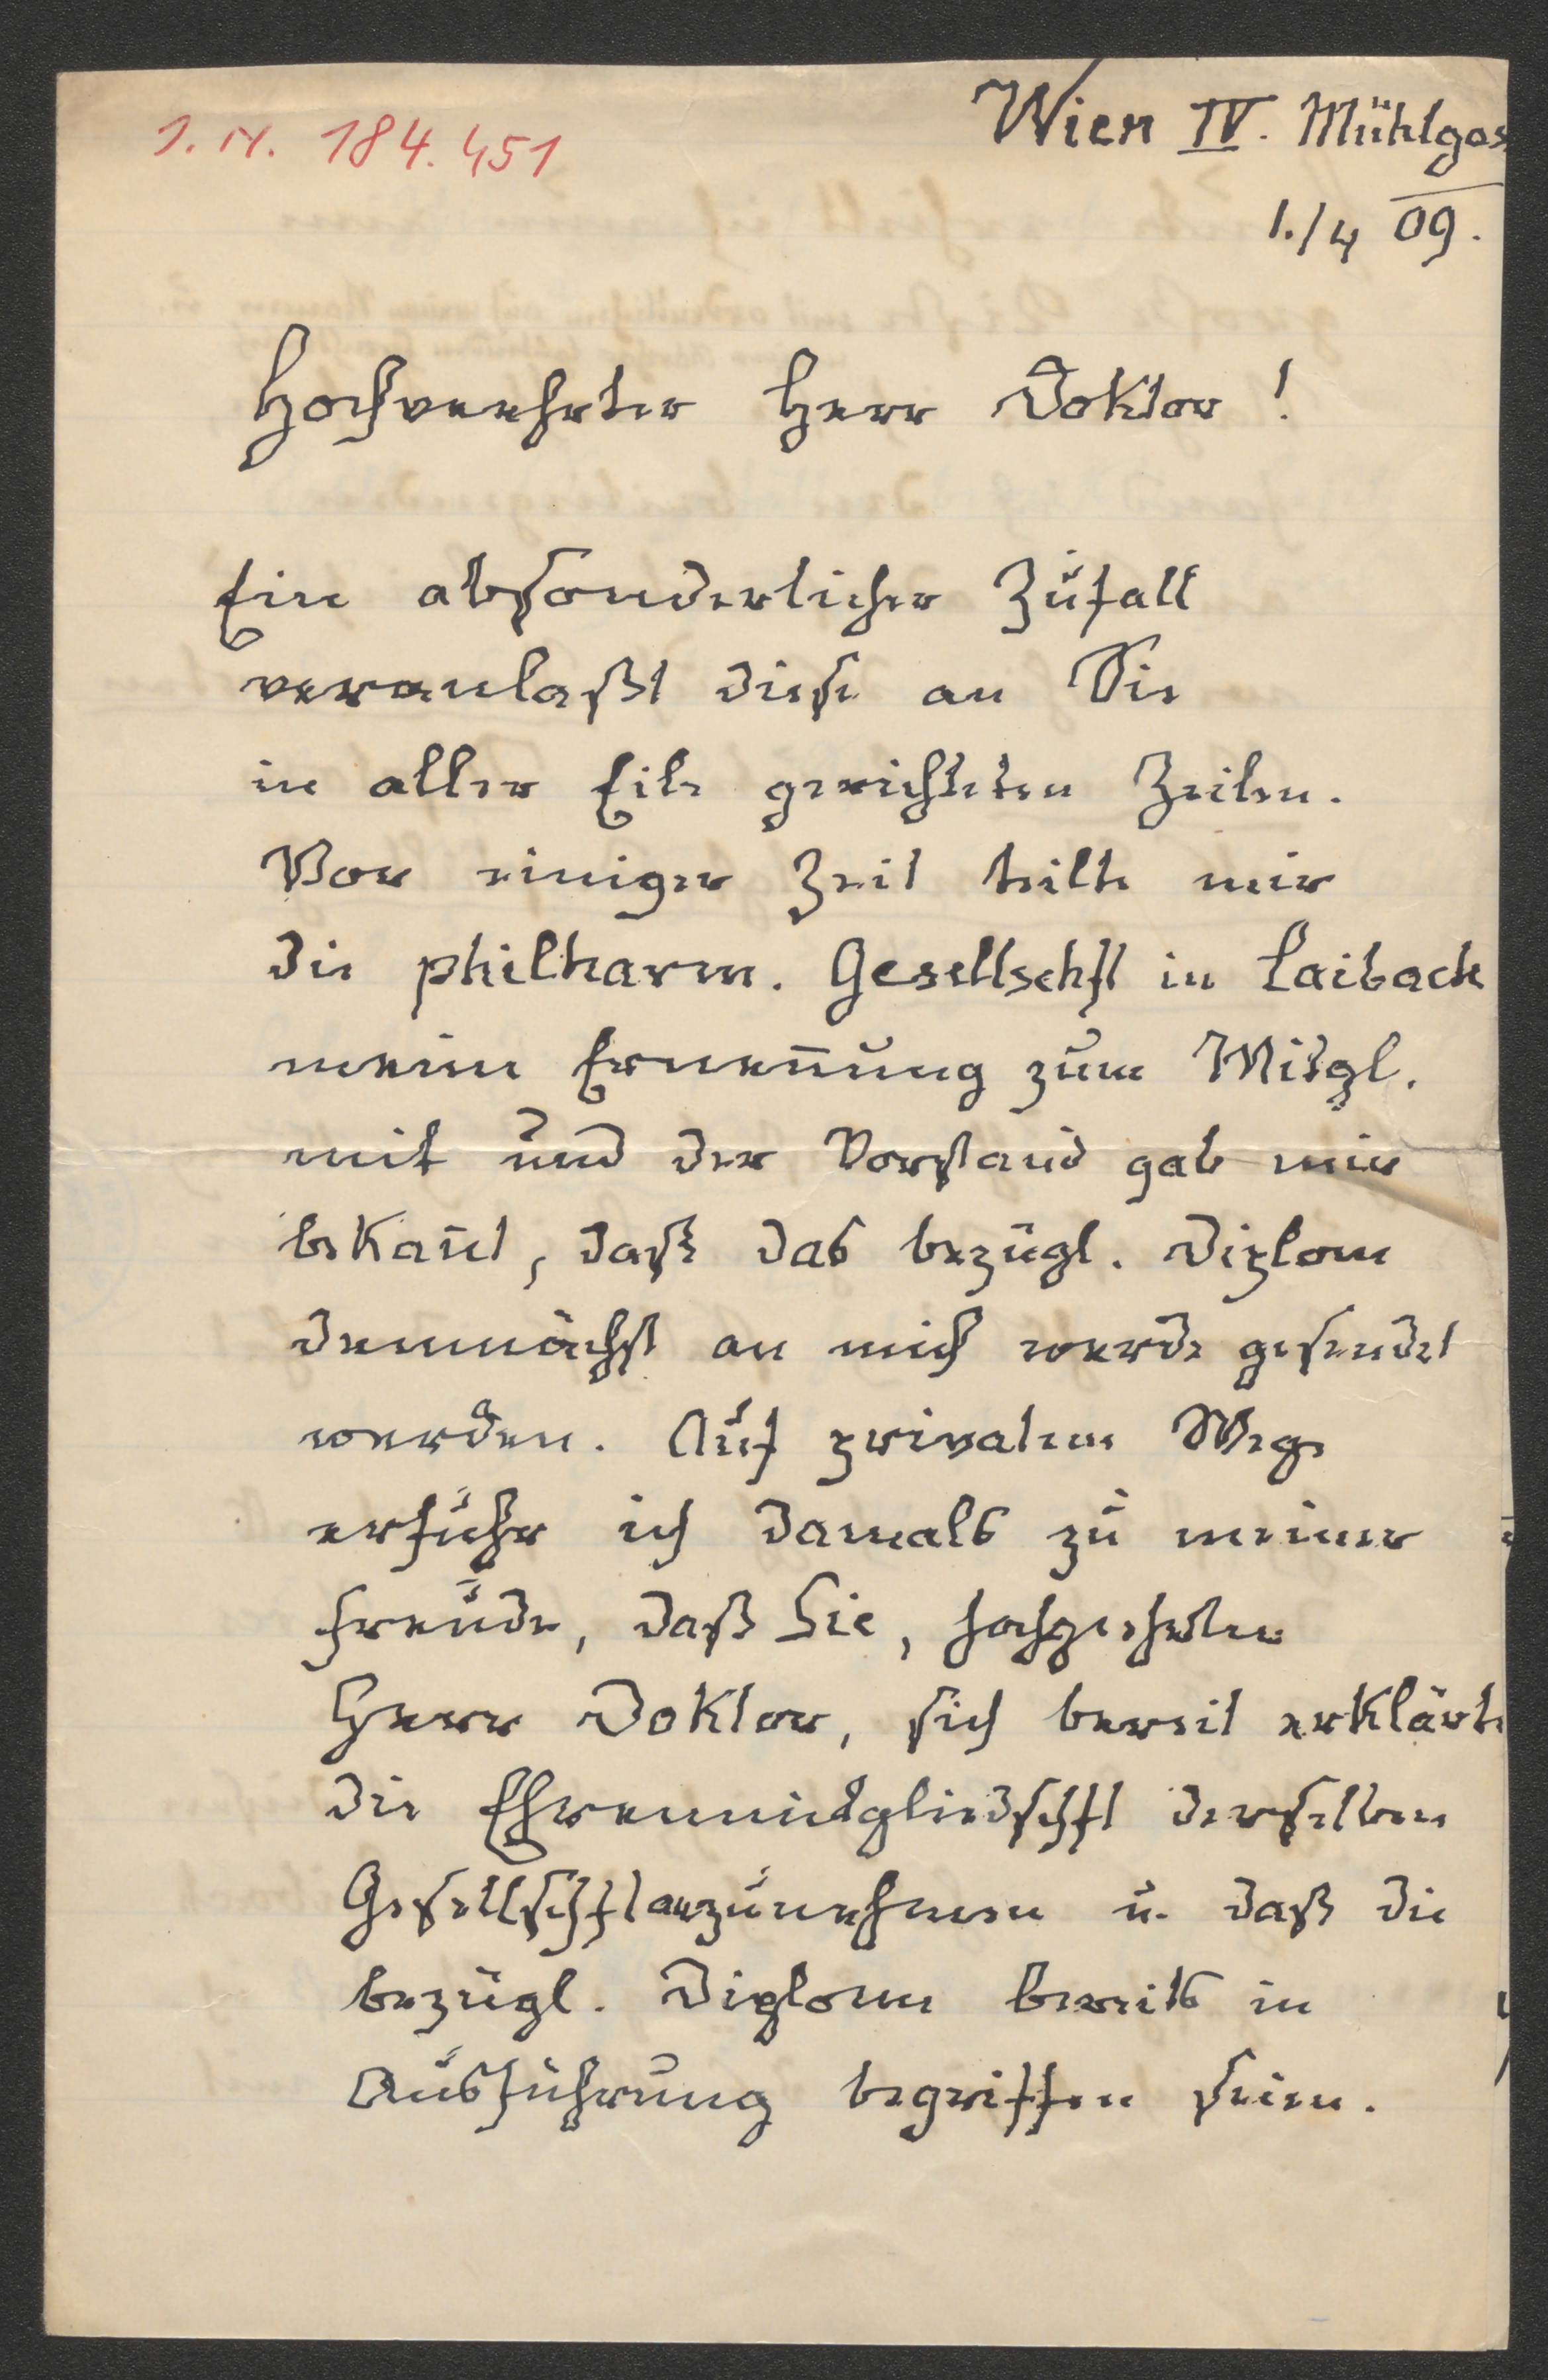 I. N. 184.451
Wien IV. Mühlgas
1./4 09.
Hochverehrter Herr Doktor!
Ein absonderlicher Zufall
veranlaßt diese an Sie
in aller Eile gerichteten Zeilen.
Vor einiger Zeit teilte mir
die philharm. Gesellschft in Laibach
meine Ernen̄ung zum Mitgl.
mit und der Vorstand gab mir
bekan̄t, daß das bezügl. Diplom
demnächst an mich werde gesendet
werden. Auf privatem Wege
erfuhr ich damals zu meiner
Freude, daß Sie, hochgeehrter
Herr Doktor, sich bereit erklärte
die Ehrenmitgliedschft derselben
Gesellschft anzunehmen u. daß die
bezügl. Diplome bereits in
Ausführung begriffen seien.